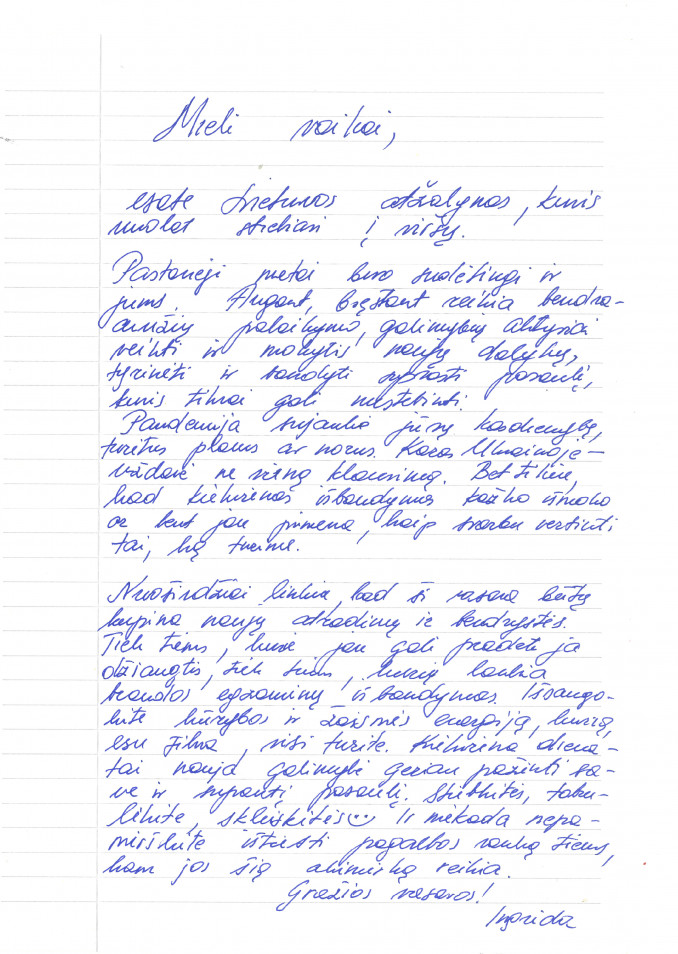 Mieli vaikai,
esate Lietuvos atžalynas, kuris
nuolat stiebiasi į viršų.
Pastarieji metai buvo sudėtingi ir
jums. Augant, bręstant reikia bendra-
amžių palaikymo, galimybių aktyviai
veikti ir mokytis naujų dalykų,
tyrinėti ir bandyti suprasti pasaulį,
kuris tikrai gali nustebinti.
Pandemija sujaukė jūsų kasdienybę,
turėtus planus ar norus. Karas Ukrainoje –
uždavė ne vieną klausimą. Bet tikiu,
kad kiekvienas išbandymas kažko išmoko
ar bent jau primena, kaip svarbu vertinti
tai, ką turime.
Nuoširdžiai linkiu, kad ši vasara būtų
kupina naujų atradimų ir bendrystės.
Tiek tiems, kurie jau gali pradėti ja
džiaugtis, tiek tiems, kurių laukia
brandos egzaminų išbandymas. Išsaugo-
kite kūrybos ir žaismės energiją, kurią,
esu tikra, visi turite. Kiekviena diena –
tai nauja galimybė geriau pažinti sa-
ve ir suprasti pasaulį. Stiebkitės, tobu-
lėkite, skleiskitės ☺ Ir niekada nepa-
mirškite ištiesti pagalbos ranką tiems,
kam jos šią akimirką reikia.
Gražios vasaros!
Ingrida